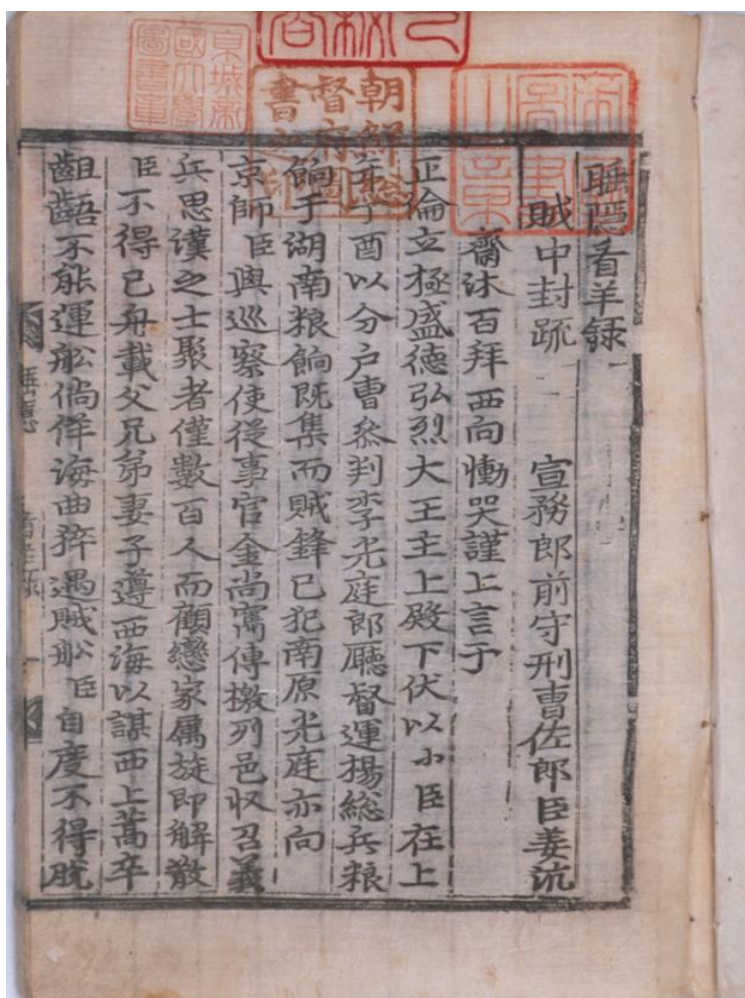 睡隱看羊録
賊中封䟽
宣務郎前守刑曹佐郎臣姜沆
齋沐百拜西向慟哭謹上言于
正倫立極盛德弘烈大王主上殿下伏以小臣在上
年丁酉以分户曹叅判李光庭郎廳督運揚総兵粮
餉于湖南粮餉既集而賊鋒已犯南原光庭亦向
京師臣與巡察使從事官金尚寯傳檄列邑収召義
兵思漢之士聚者僅數百人而顧戀家属旋即解散
臣不得已舟載父兄弟妻子遵西海以謀西上蒿卒
齟齬不能運舩徜徉海曲猝遇賊舩臣自度不得脱
朝鮮総督府圖書之印
京城帝國大學圖書章